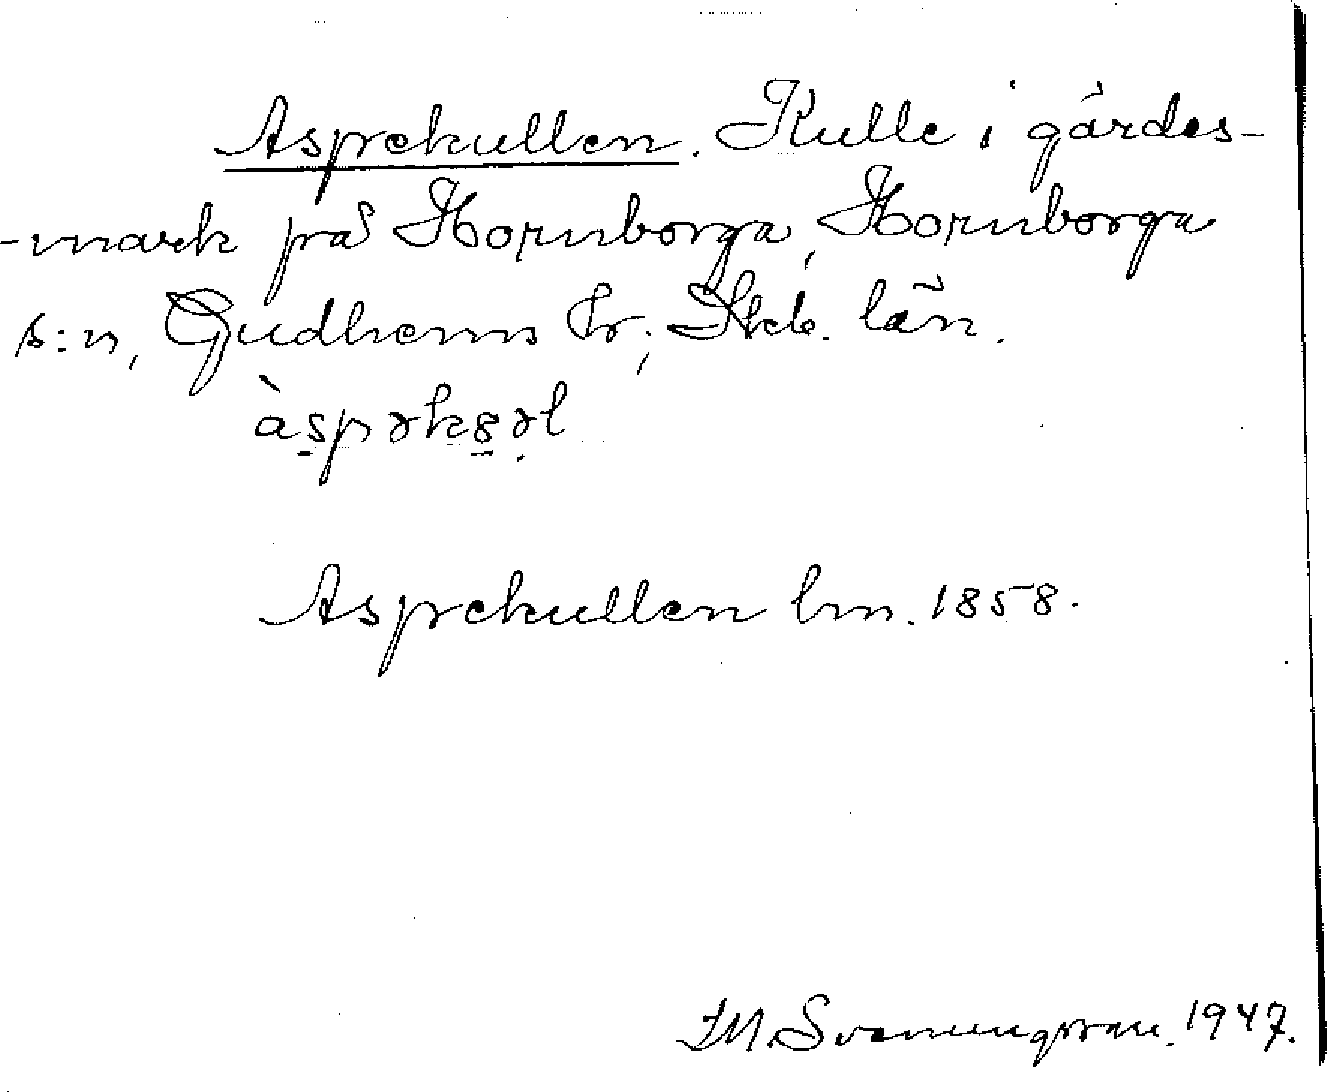 Aspekullen. Kulle i gärdes-
-mark på Hornborga, Hornborga
s:n, Gudhems hd; Skb. län.
àspək8əl
Aspekullen lm. 1858.
Svenungsson. 1947.